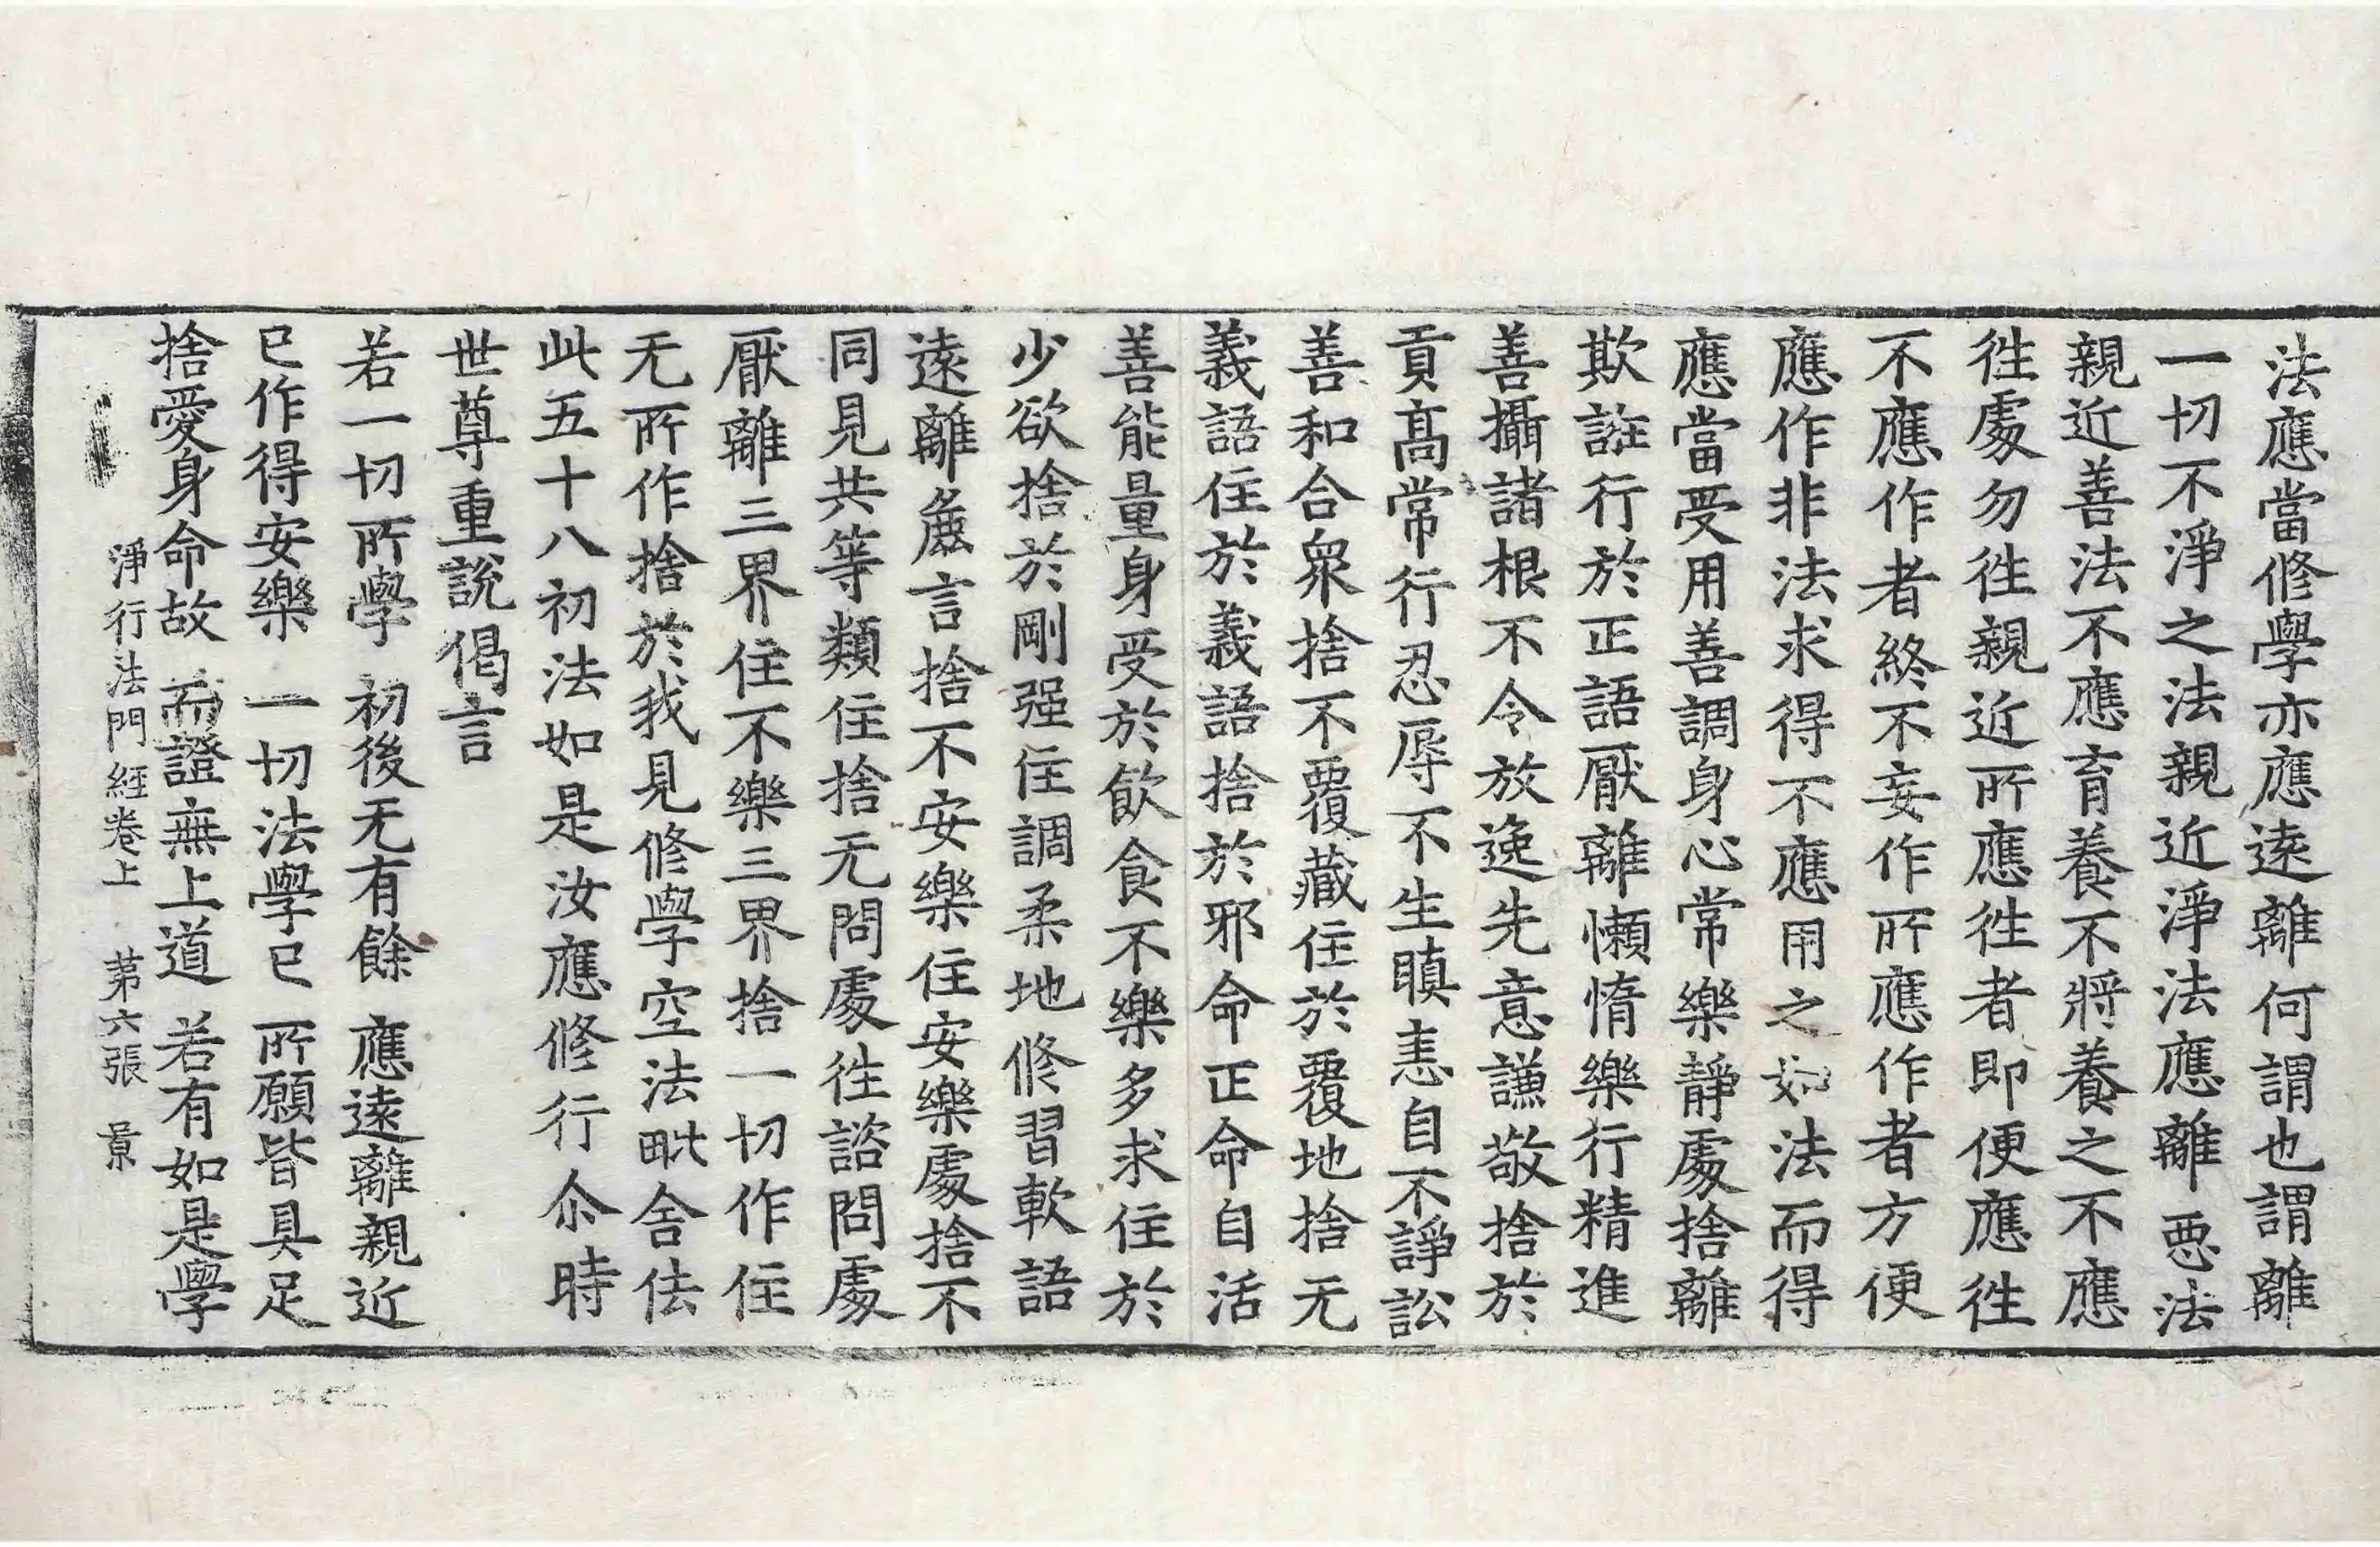 法應當修學亦應遠離何謂也謂離
一切不淨之法親近淨法應離惡法
親近善法不應育養不將養之不應
徃處勿徃親近所應徃者即便應徃
不應作者終不妄作所應作者方便
應作非法求得不應用之如法而得
應當受用善調身心常樂靜處捨離
欺誑行於正語厭離懶惰樂行精進
善攝諸根不令放逸先意謙敬捨於
貢高常行忍辱不生瞋恚自不諍訟
善和合衆捨不覆藏住於覆地捨无
義語住於義語捨於邪命正命自活
善能量身受於飲食不樂多求住於
少欲捨於剛强住調柔地修習軟語
遠離麁言捨不安樂住安樂處捨不
同見共等類住捨无問處徃諮問處
厭離三界住不樂三界捨一切作住
无所作捨於我見修學空法毗舍佉
此五十八初法如是汝應修行尒時
世尊重說偈言
若一切所學　初後无有餘　應遠離親近
已作得安樂　一切法學已　所願皆具足
捨愛身命故　而證無上道　若有如是學
淨行法門經卷上　第六張　景